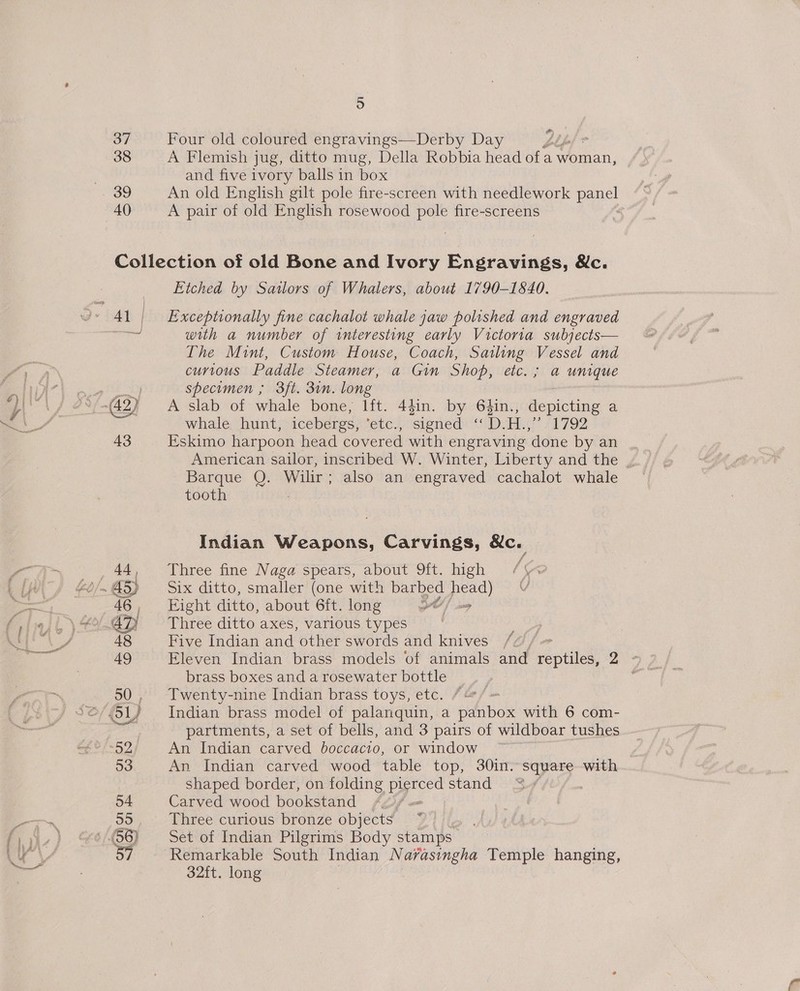 5
37 Four old coloured engravings—Derby Day
38 A Flemish jug, ditto mug, Della Robbia head of a woman,
and five ivory balls in box
39 An old English gilt pole fire-screen with needlework panel
40 A pair of old English rosewood pole fire-screens
Collection of old Bone and Ivory Engravings, &c.
Etched by Sailors of Whalers, about 1790–1840.
41 Exceptionally fine cachalot whale jaw polished and engraved
with a number of interesting early Victoria subjects—
The Mint, Custom House, Coach, Sailing Vessel and
curious Paddle Steamer, a Gin Shop, etc.; a unique
specimen; 3ft. 3in. long
42 A slab of whale bone, 1ft. 4½in. by 6½in., depicting a
whale hunt, icebergs, etc., signed “D.H.,” 1792
43 Eskimo harpoon head covered with engraving done by an
American sailor, inscribed W. Winter, Liberty and the
Barque Q. Wilir; also an engraved cachalot whale
tooth
Indian Weapons, Carvings, &c.
44 Three fine Naga spears, about 9ft. high
45 Six ditto, smaller (one with barbed head)
46 Eight ditto, about 6ft. long
47 Three ditto axes, various types
48 Five Indian and other swords and knives
49 Eleven Indian brass models of animals and reptiles, 2
brass boxes and a rosewater bottle
50 Twenty-nine Indian brass toys, etc.
51 Indian brass model of palanquin, a panbox with 6 com-
partments, a set of bells, and 3 pairs of wildboar tushes
52 An Indian carved boccacio, or window
53 An Indian carved wood table top, 30in. square with
shaped border, on folding pierced stand
54 Carved wood bookstand
55 Three curious bronze objects
56 Set of Indian Pilgrims Body stamps
57 Remarkable South Indian Narasingha Temple hanging,
32ft. long